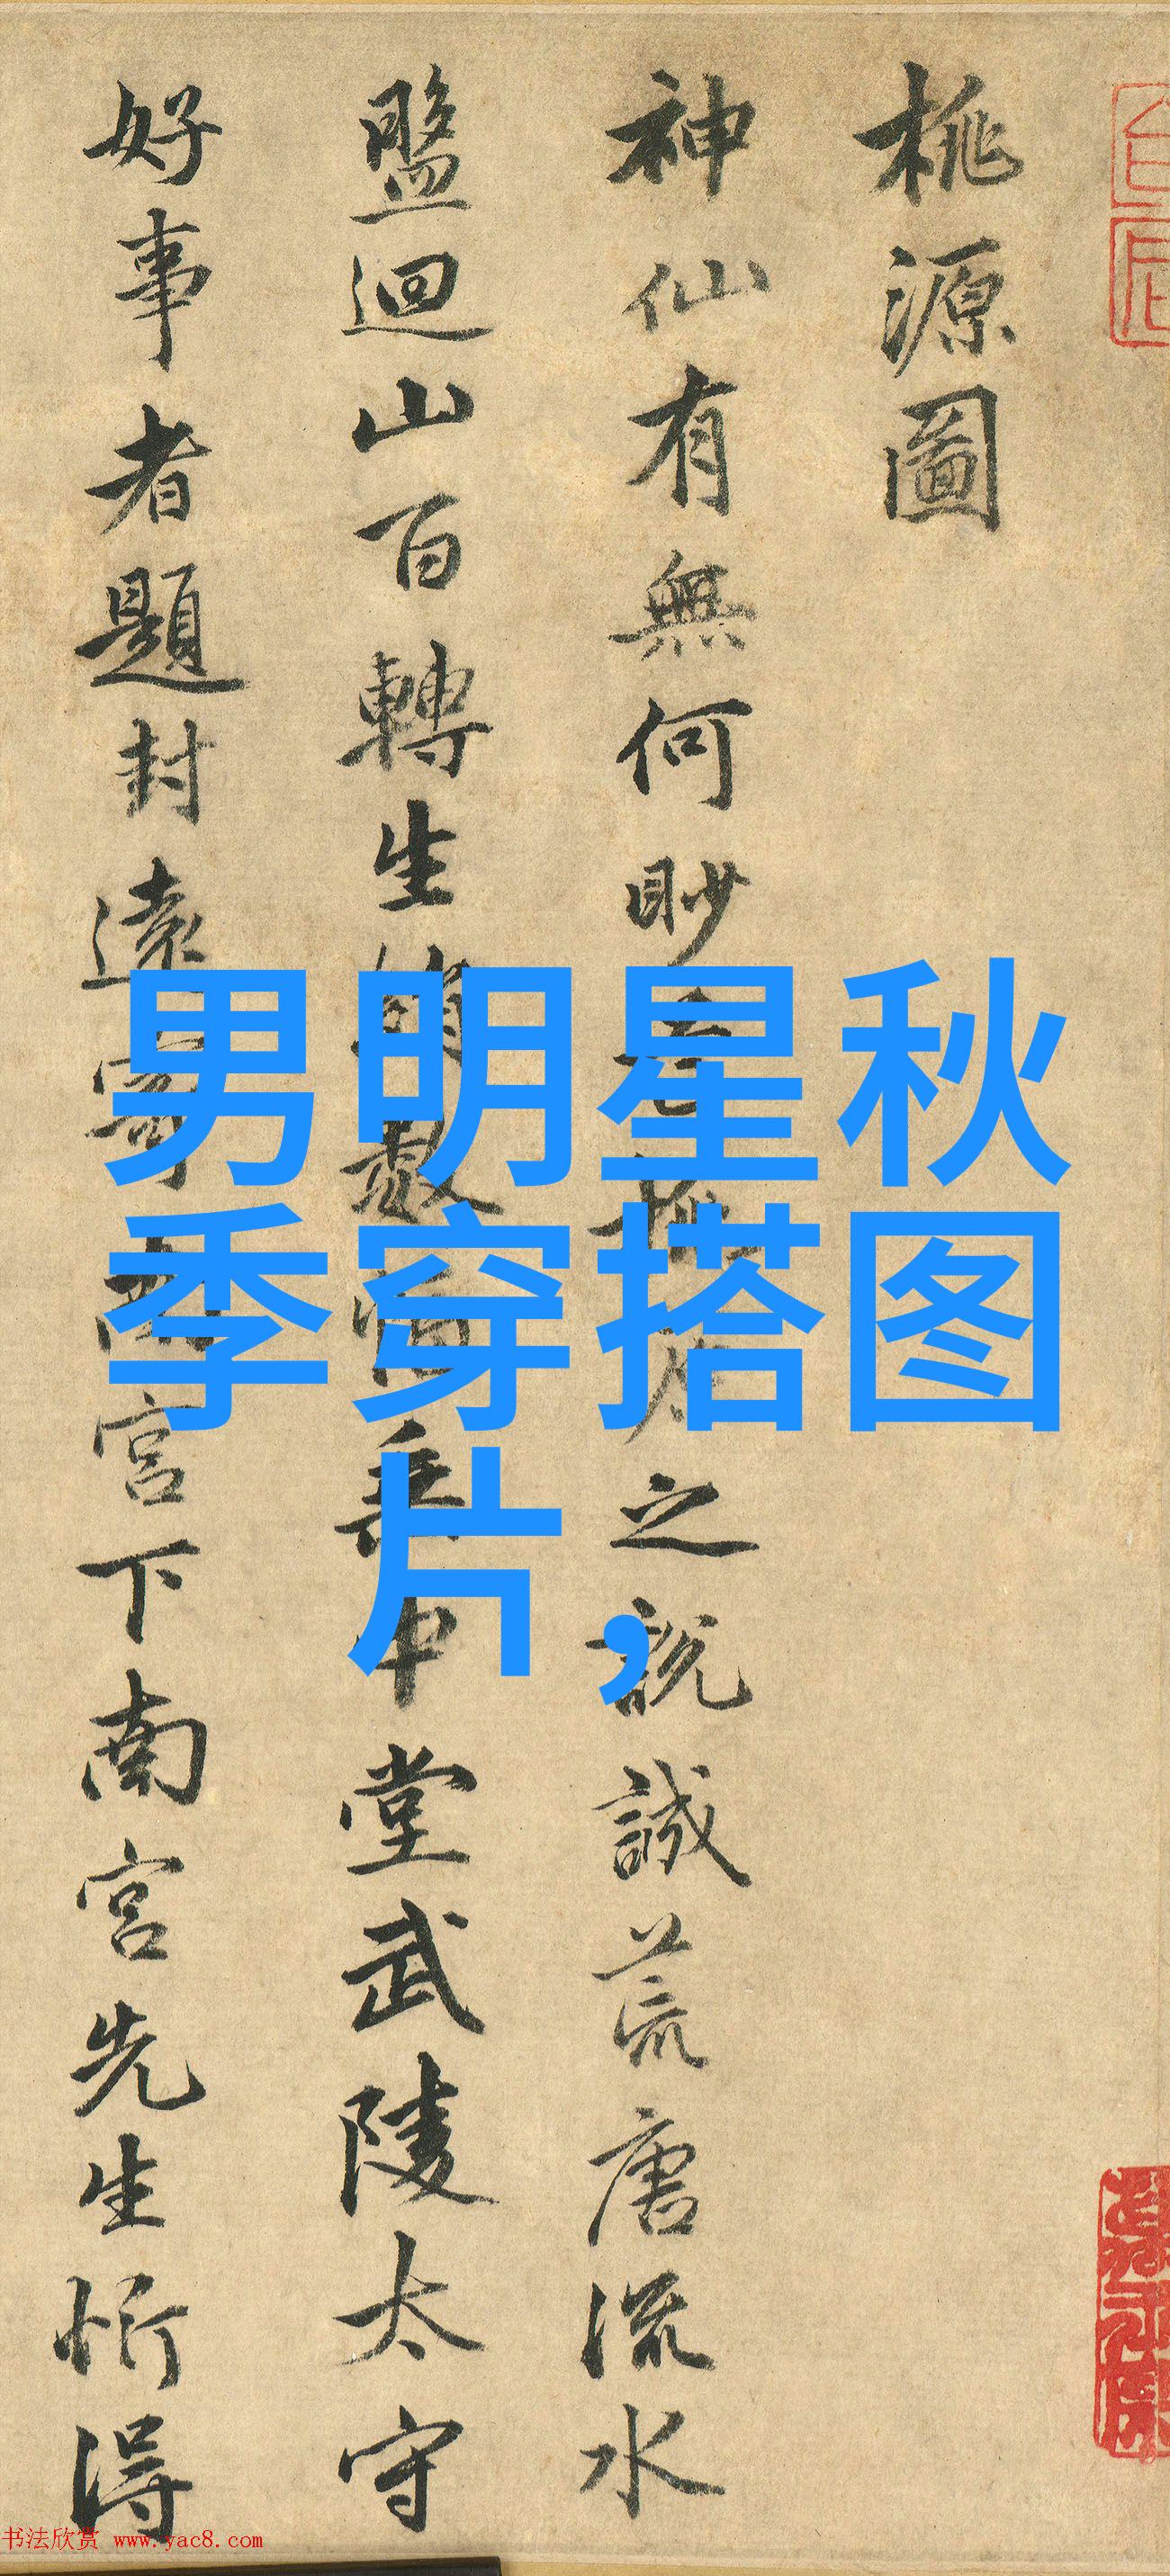 桃源圖
神仙有無何眇芒桃之說誠荒唐流水
盤迴山百轉生綃數幅垂中堂武陵太守
好事者題封遠寄南宮下南宮先生忻得
男明星秋
季穿搭图
片，
书法欣赏 www.yac8.com